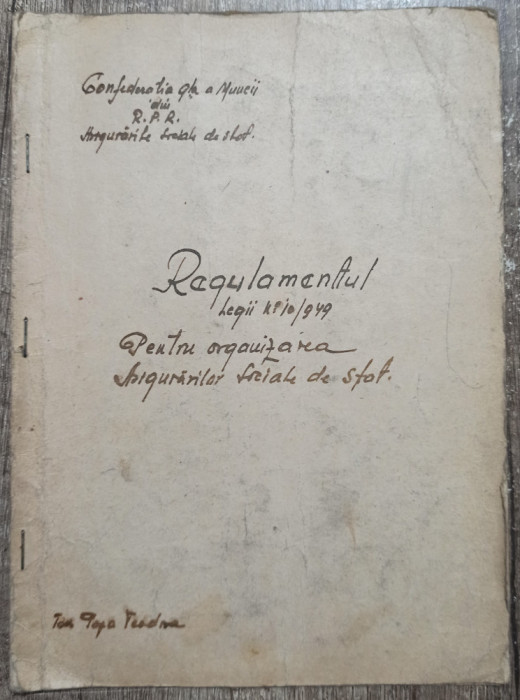 Confederatia glă a Muncii
din
R.P.R.
Asigurările Sociale de Stat.
Regulamentul
Legii Nº 10/949
Pentru organizarea
Asigurărilor Sociale de Stat.
Popa Teodora